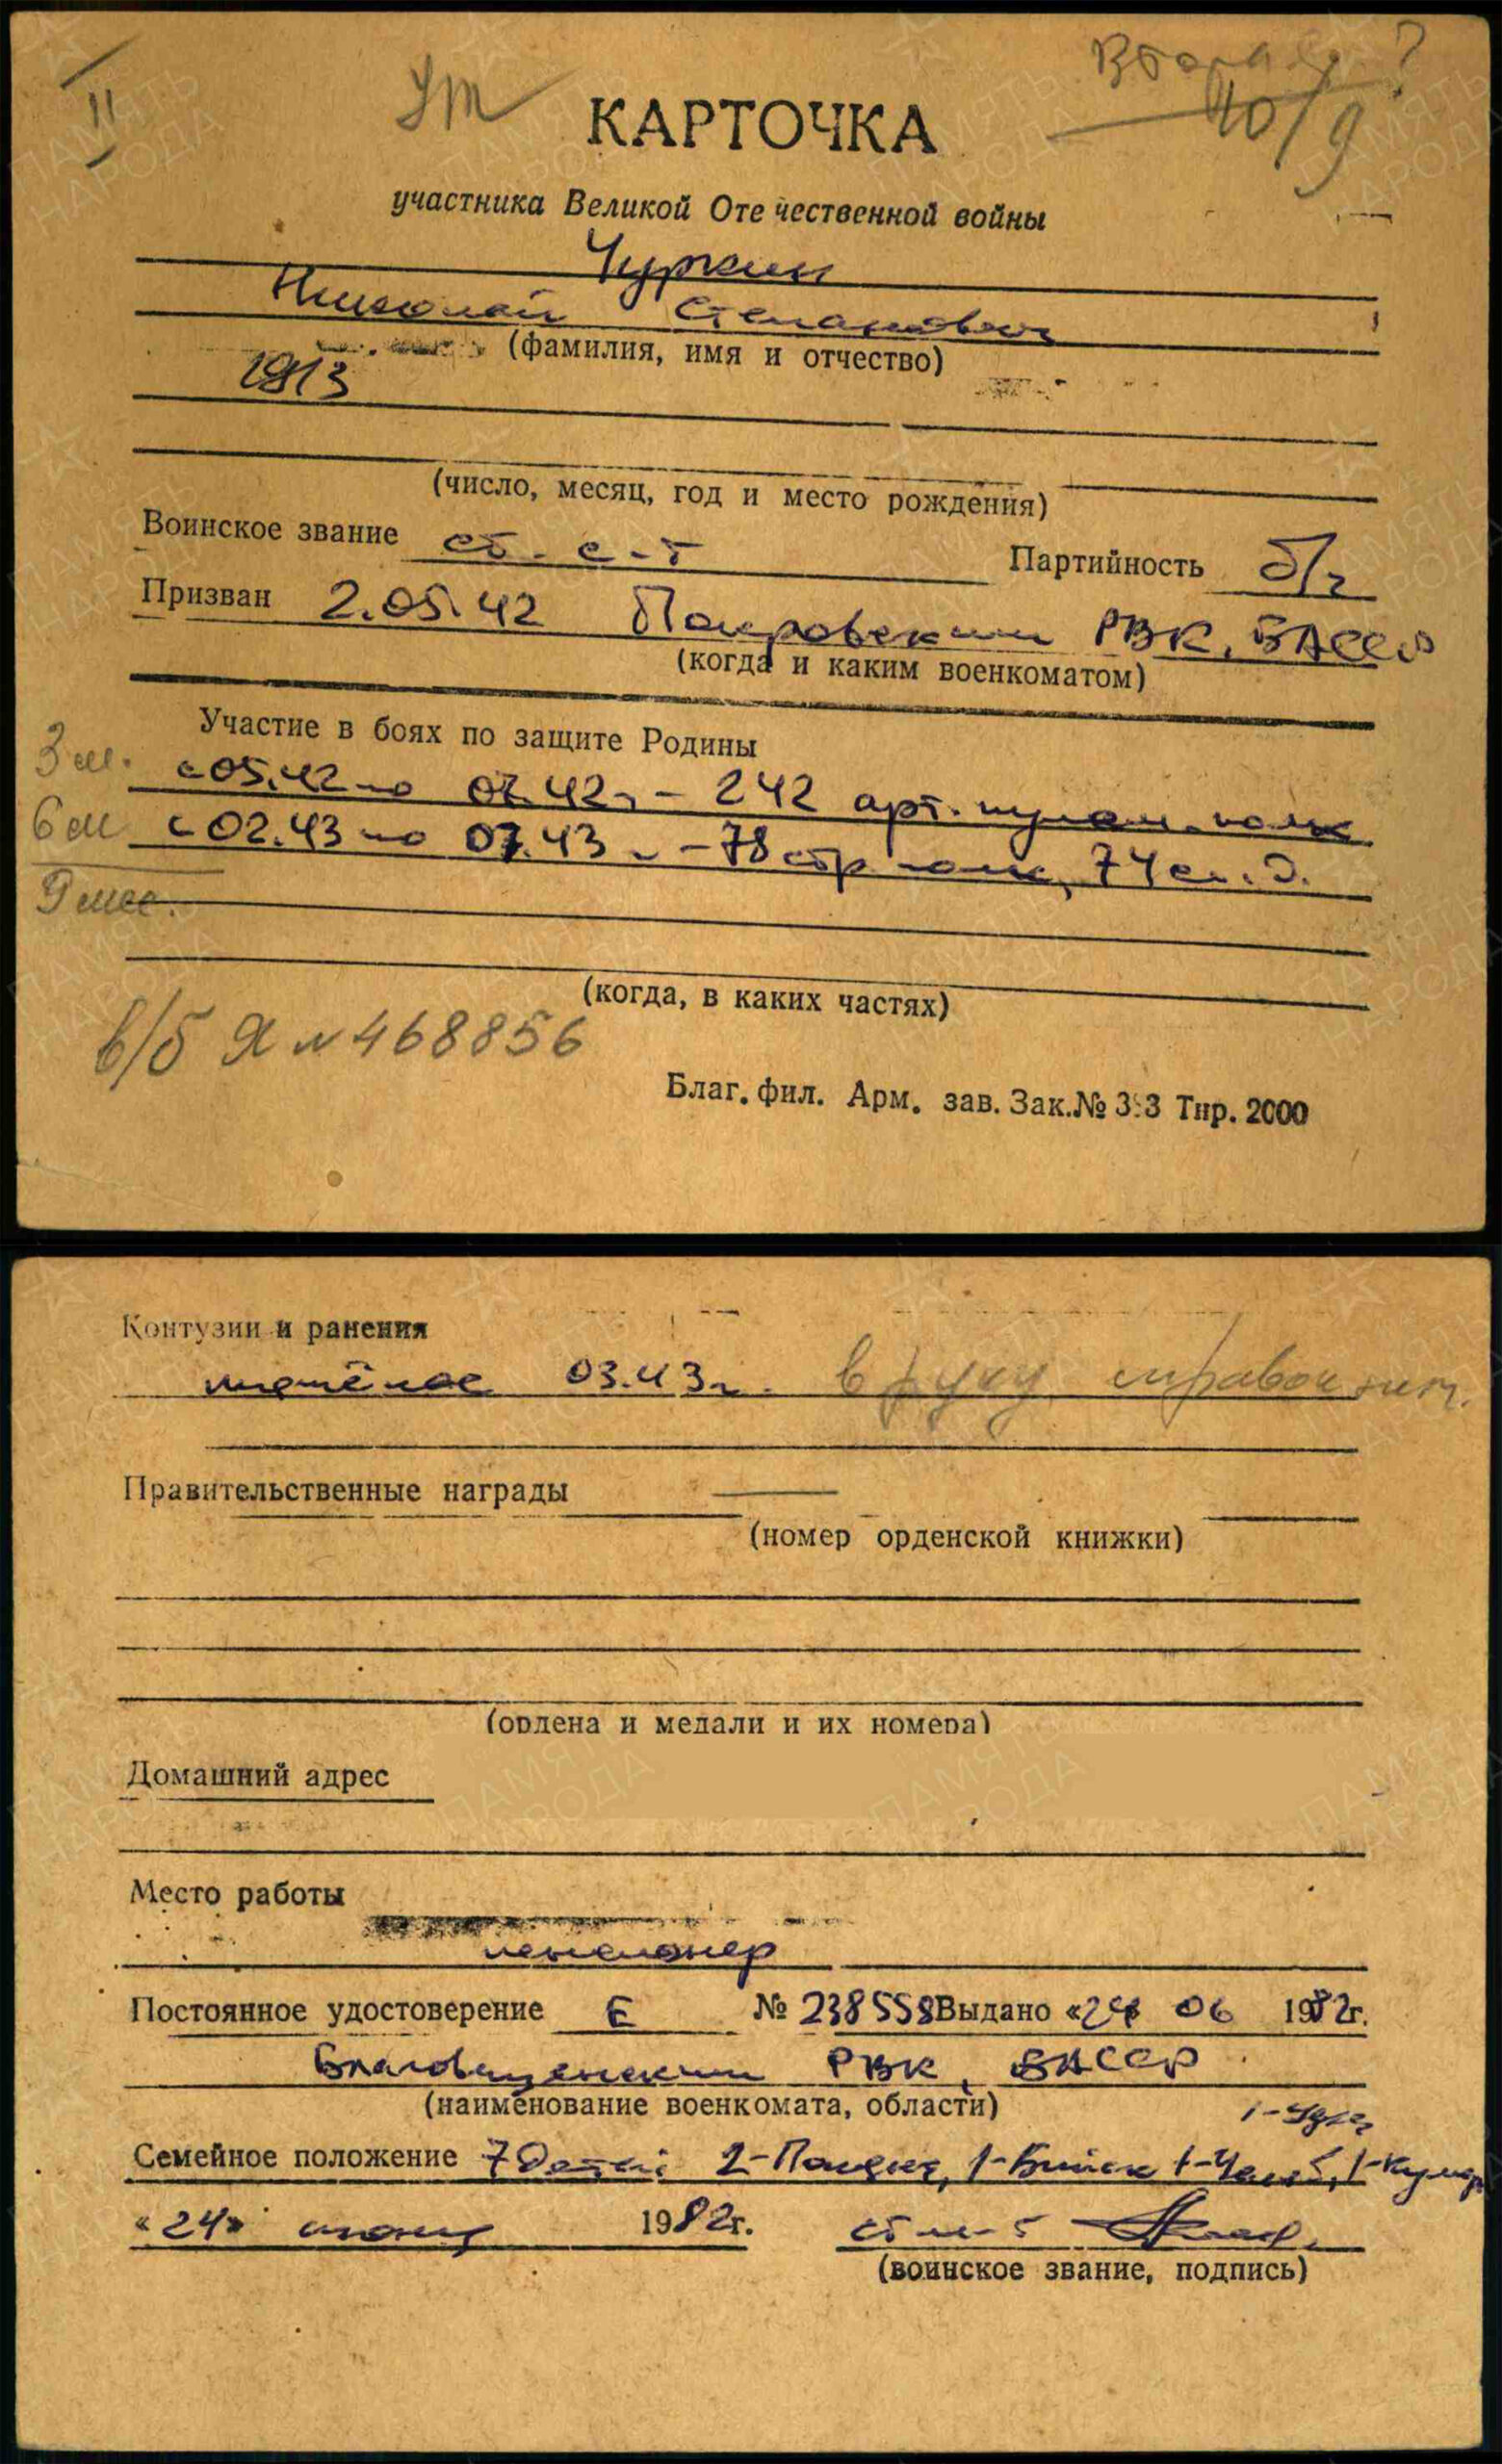 II
Ут
Вторая ?
10/9
КАРТОЧКА
участника Великой Отечественной войны
Чуркин
Николай Степанович
(фамилия, имя и отчество)
1913
(число, месяц, год и место рождения)
Воинское звание ст. с-т Партийность б/п
Призван 2.05.42 Покровским РВК, БАССР
(когда и каким военкоматом)
Участие в боях по защите Родины
3 м. с 05.42 по 07.42г - 242 арт. пулем. полк
6 м с 02.43 по 07.43 г - 78 стр полк, 74 с. д.
9 мес.
(когда, в каких частях)
в/б Я № 468856
Благ. фил. Арм. зав. Зак.№ 3:3 Тир. 2000
Контузии и ранения
тяжёлое 03.43г. в руку
Правительственные награды —
(номер орденской книжки)
(ордена и медали и их номера)
Домашний адрес
Место работы
пенсионер
Постоянное удостоверение Е № 238558 Выдано «24 06 1982г.
Благовещенским РВК, БАССР
(наименование военкомата, области)
Семейное положение 7 детей 1-Бийск
«24» июня 1982г. ст
(воинское звание, подпись)
ПАМЯТЬ НАРОДА